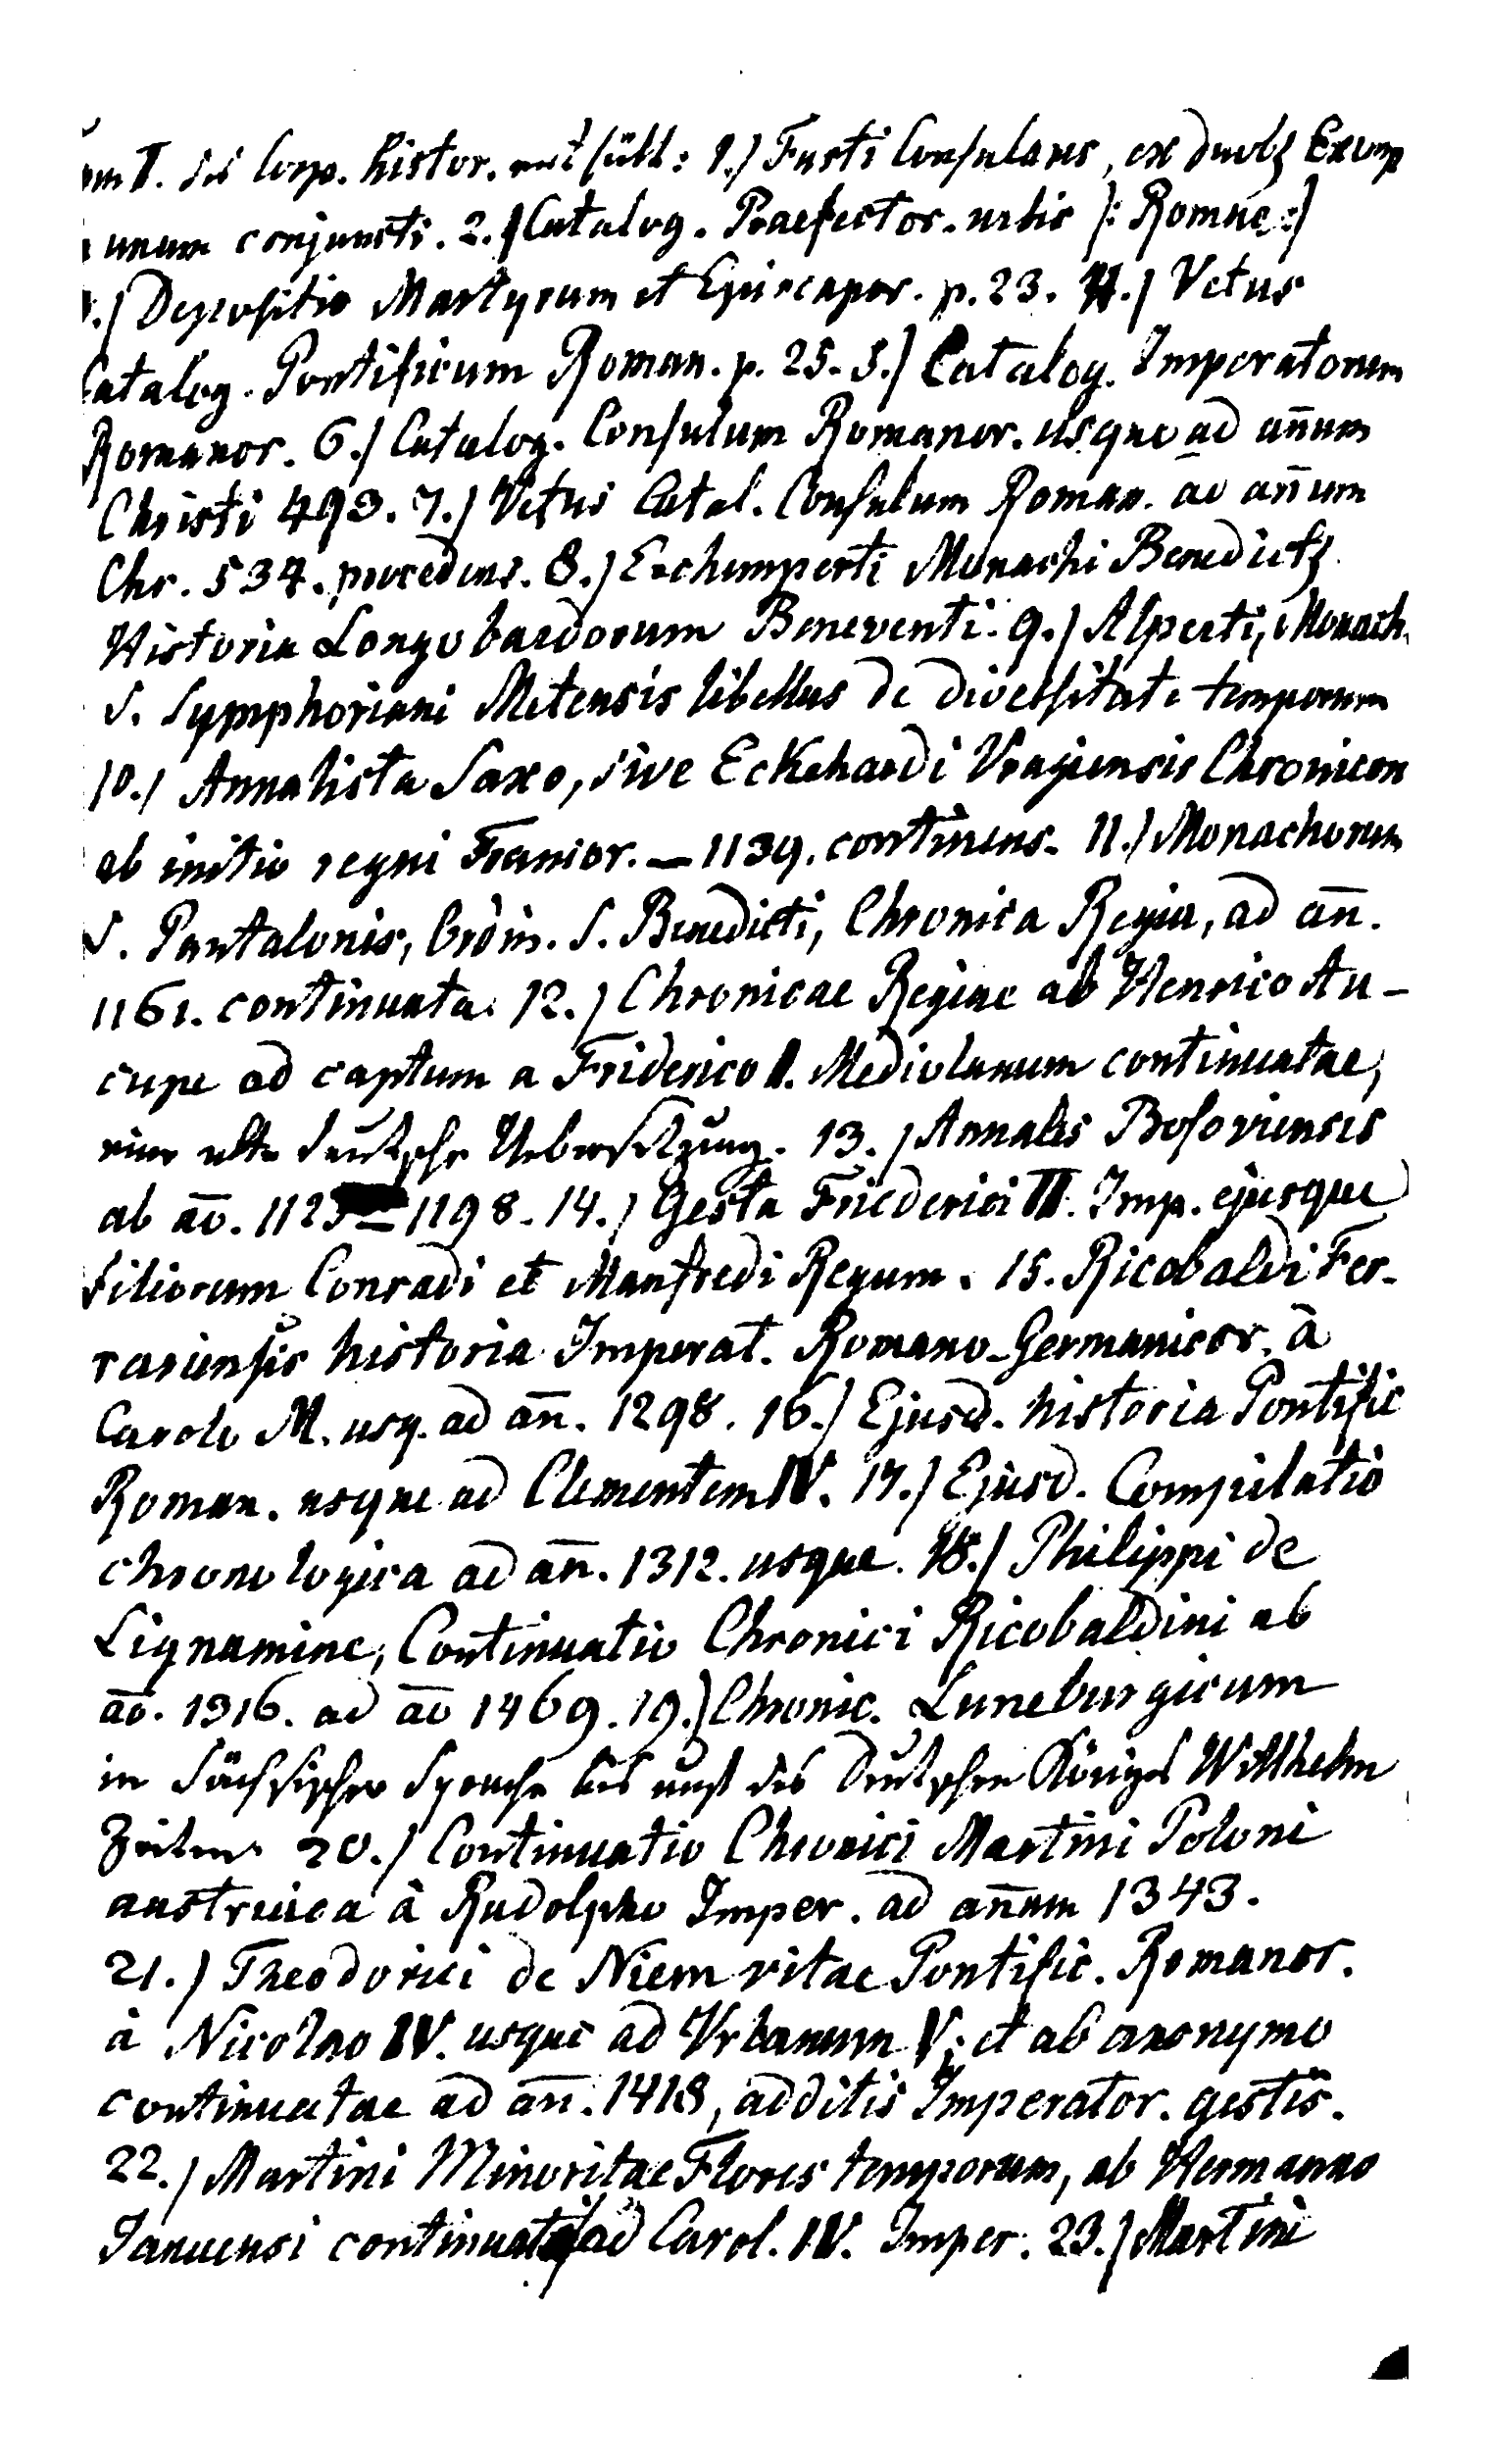 om I. des Corp. histor. enthält: 1.) Fasti Consulares, ex duobq Exemp
unum conjuncti. 2.) Catalog. Praefector. urbis |: Romae :|
.) Depositio Martyrum et Episcopor. p. 23. 4.) Vetus
Catalog. Pontificum Roman. p. 25. 5.) Catalog. Imperatorum
Romanor. 6.) Catalog. Consulum Romanor. usque ad an̄um
Christi 493. 7.) Vetus Catal. Consulum Roman. ad an̄um
Chr. 534. procedens. 8.) Erchemperti Monachi Benedict
Historia Longobardorum Beneventi. 9.) Alperti, Monach.
S. Symphoriani Metensis libellus de diversitate temporum
10.) Annalista Saxo, sive Eckehardi Vragiensis Chronicon
ab initio regni Francor. — 1139. continens. 11.) Monachorum
S. Pantalonis, Ordin. S. Benedicti, Chronica Regia, ad an̄.
1161. continuata. 12.) Chronicae Regiae ab Henrico Au-
cupe ad captum a Friderico I. Mediolanum continuatae,
eine alte deutsche Uebersetzung. 13.) Annales Bosovienses
ab ao̅. 1125 — 1198. 14.) Gesta Friederici II. Imp. ejusque
filiorum Conradi et Manfredi Regum. 15. Ricobaldi Fer-
rariensis historia Imperat. Romano-Germanicor. à
Carolo M. usq. ad an̄. 1298. 16.) Ejusd. historia Pontific
Roman. usque ad Clementem IV. 17.) Ejusd. Compilatio
chronologica ad an̄. 1312. usque. 18.) Philippi de
Lignamine, Continuatio Chronici Ricobaldini ab
ao̅. 1316. ad ao̅ 1469. 19.) Chronic. Luneburgicum
in Sächsischer Sprache bis auf des Deutschen Königes Wilhelm
Zeiten. 20.) Continuatio Chronici Martini Poloni
austriaca à Rudolpho Imper. ad an̄um 1343.
21.) Theodorici de Niem vitae Pontific. Romanor.
à Nicolao IV. usque ad Vrbanum V. et ab anonymo
continuatae ad an̄. 1418, additis Imperator. gestis.
22.) Martini Minoritae Flores temporum, ab Hermanno
Januensi continuati ad Carol. IV. Imper. 23.) Martini